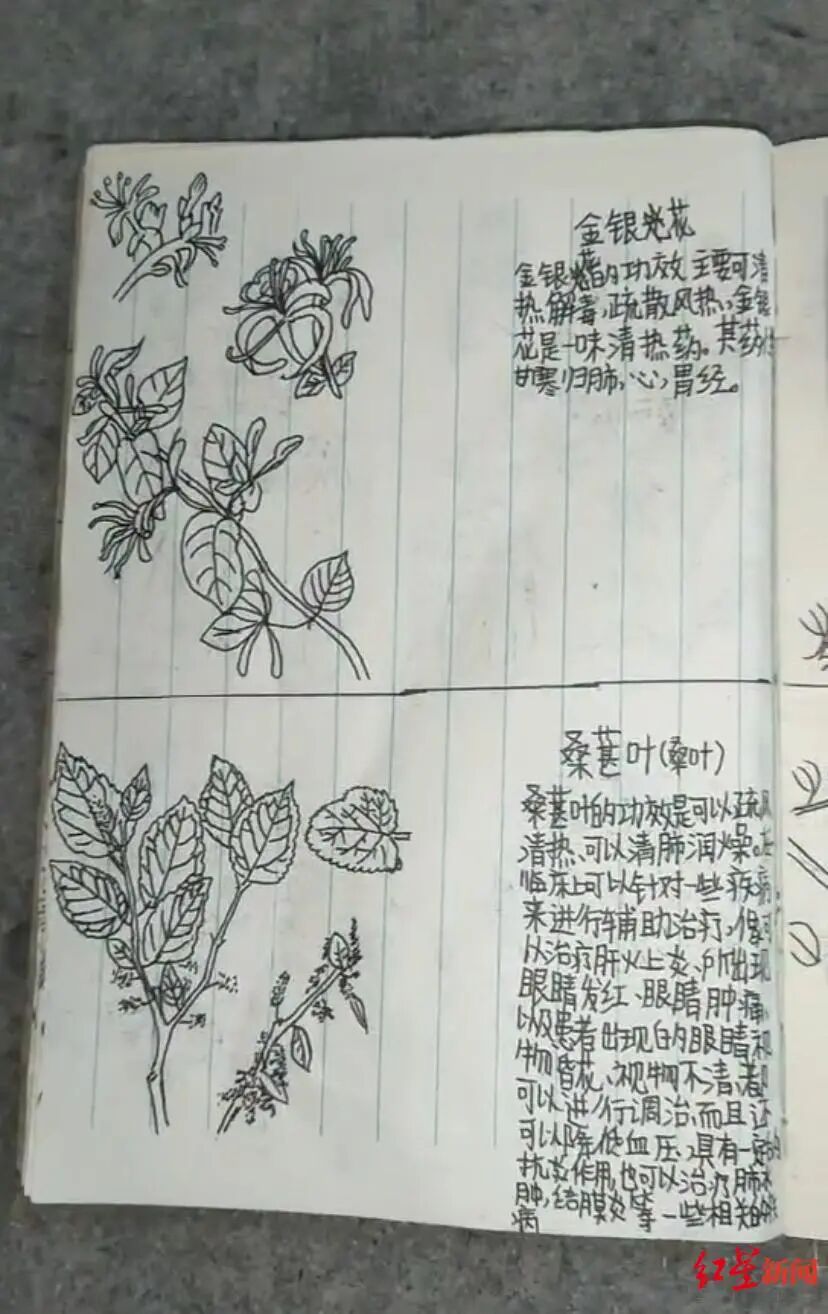 金银花
金银花的功效主要可清
热解毒,疏散风热,金银
花是一味清热药。其药性
甘寒归肺,心,胃经。
桑葚叶(桑叶)
桑葚叶的功效是可以疏风
清热、可以清肺润燥。在
临床上可以针对一些疾病
来进行辅助治疗,像可
以治疗肝火上炎、所出现
眼睛发红、眼睛肿痛,
以及患者出现的眼睛视
物昏花、视物不清,都
可以进行调治,而且还
可以降低血压,具有一定的
抗炎作用,也可以治疗肺水
肿,结膜炎等一些相关的
病
红星新闻